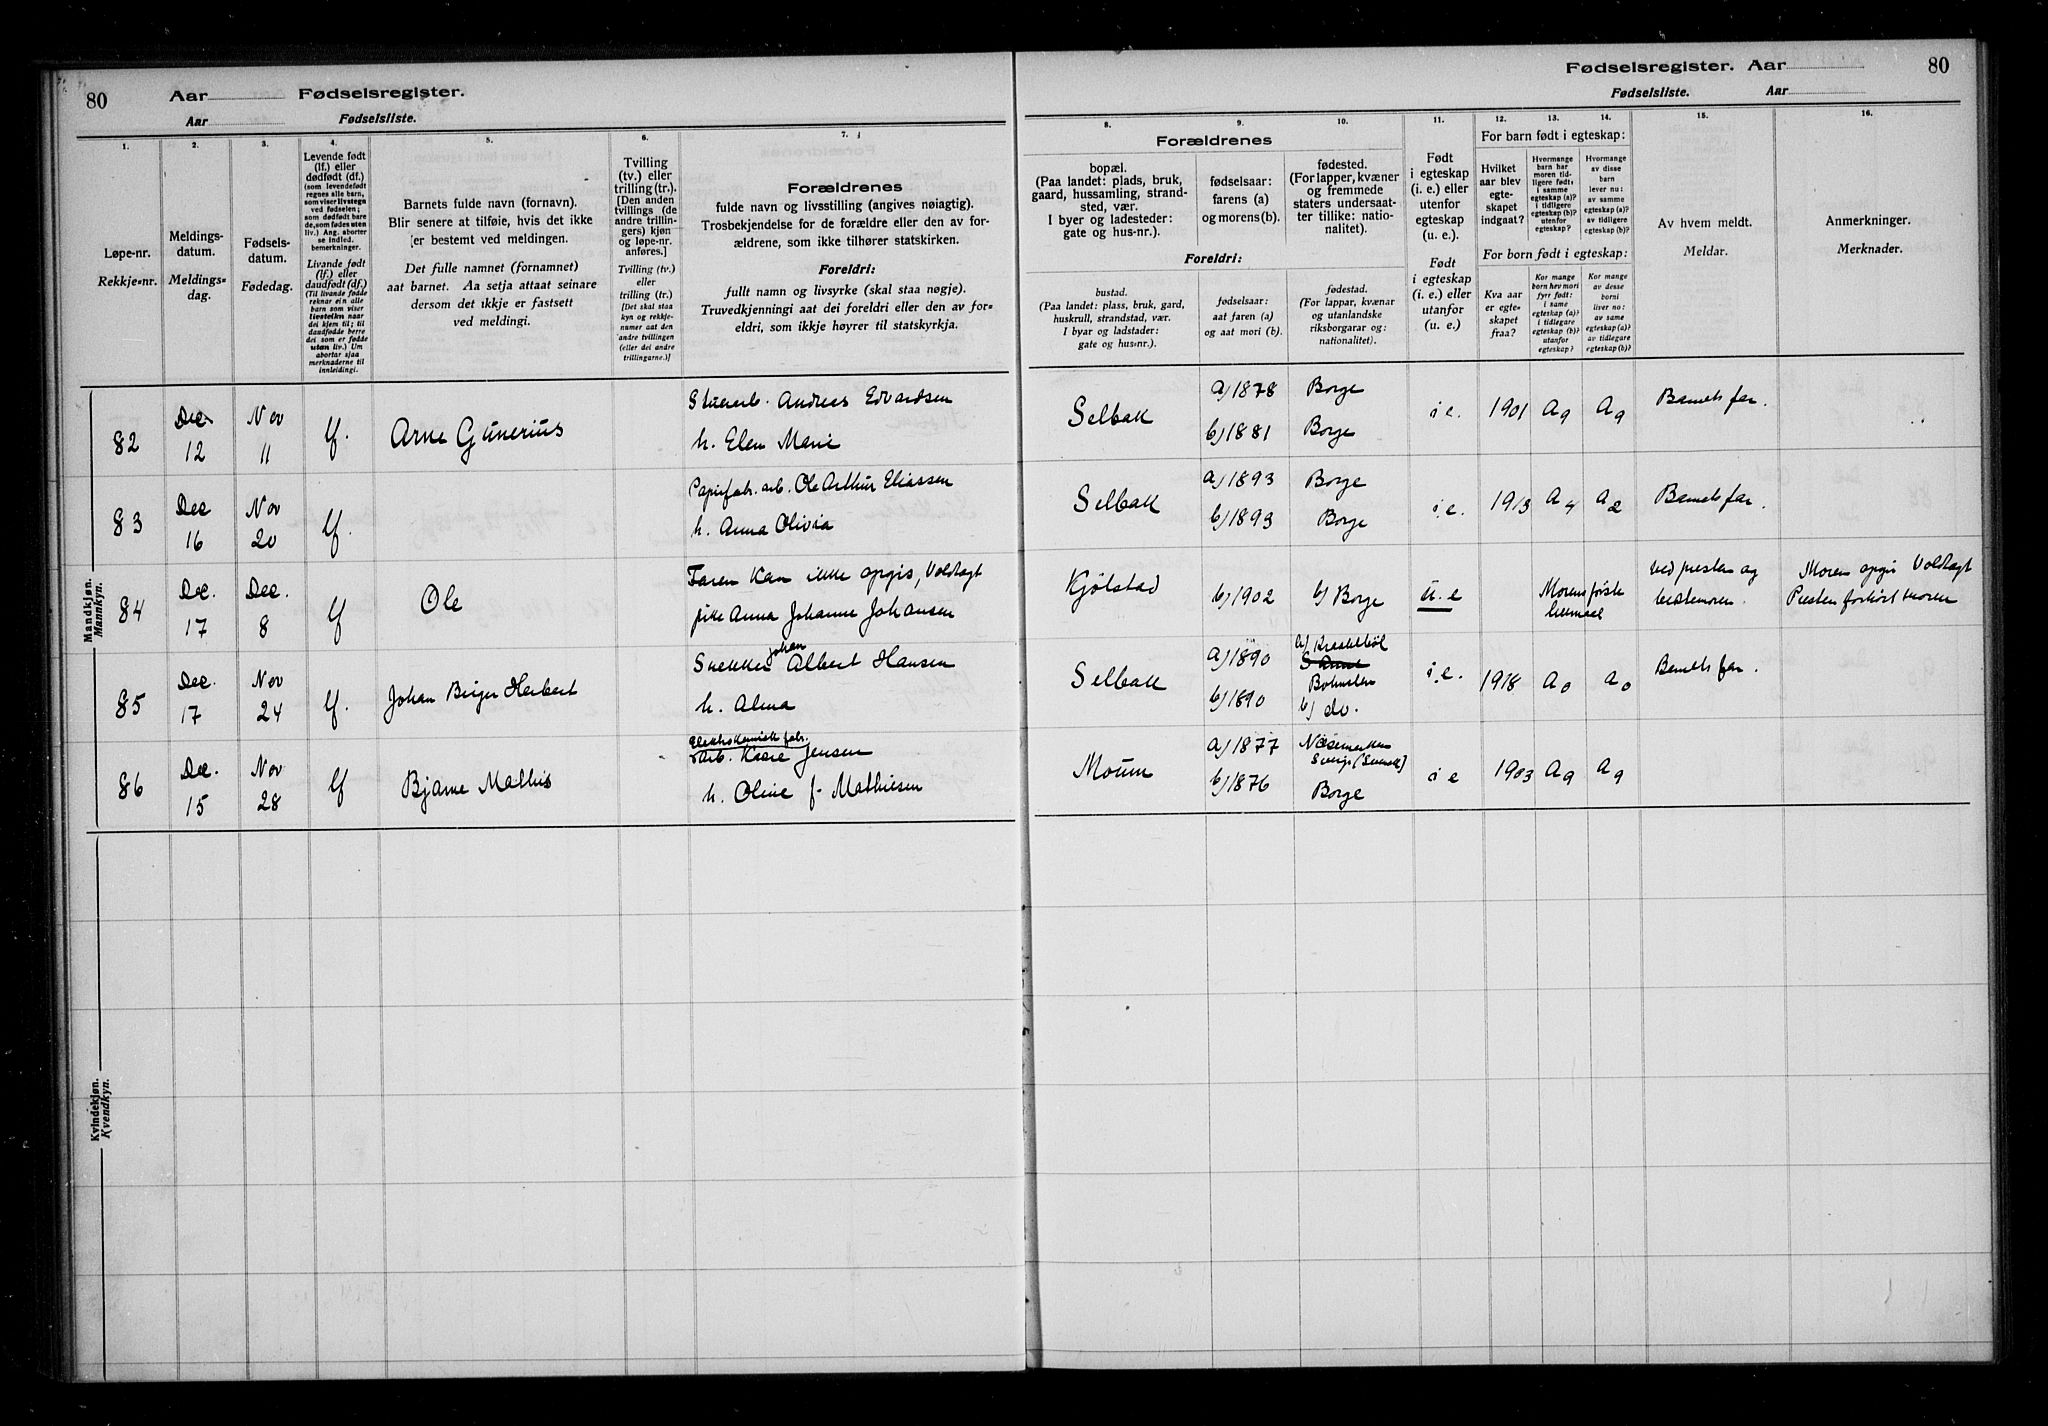 80
Aar
Fødselsregister.
Aar
Fødselsliste.
1.
Løpe-nr.
Rekkje-nr.
2.
Meldings-
datum.
Meldings-
dag.
3.
Fødsels-
datum.
Fødedag.
4.
Levende født
(lf.) eller
dødfødt (df.)
(som levendefødt
regnes alle barn,
som viser livstegn
ved fødselen;
som dødfødt bare
de, som fødes uten
liv.) Ang. aborter
se indled.
bemerkninger.
Livande født
(lf.) eller
daudfødt (df.)
(Til livande fødde
reknar ein alle
barn som viser
livsteikn naar
dei kjem til; til
daudfødde berre
dei som er fødde
utan liv.) Um
abortar sjaa
merknaderne til
innleidingi.
5.
Barnets fulde navn (fornavn).
Blir senere at tilføie, hvis det ikke
er bestemt ved meldingen.
Det fulle namnet (fornamnet)
aat barnet. Aa setja attaat seinare
dersom det ikkje er fastsett
ved meldingi.
6.
Tvilling
(tv.) eller
trilling (tr.).
[Den anden
tvillings (de
andre trillin-
gers) kjøn
og løpe-nr.
anføres.]
Tvilling (tv.)
eller
trilling (tr.)
[Det skal staa
kyn og rekkje-
numer aat den
andre tvillingen
(eller dei andre
trillingarne.)]
7.
Forældrenes
fulde navn og livsstilling (angives nøiagtig).
Trosbekjendelse for de forældre eller den av for-
ældrene, som ikke tilhører statskirken.
Foreldri:
fullt namn og livsyrke (skal staa nøgje).
Truvedkjenningi aat dei foreldri eller den av for-
eldri, som ikkje høyrer til statskyrkja.
Mandkjøn.
Mankyn.
82
Dec
12
Nov
11
lf.
Arne Gunerius
Andreas Edvardsen
h. Elen Marie
83
Dec
16
Nov
20
lf.
Papirfabr. arb. Ole Arthur Eliassen
h. Anna Olivia
84
Dec.
17
Dec.
8
lf
Ole
Faren kan ikke opgis, Voldtagt
pike Anna Johanne Johansen
85
Dec.
17
Nov
24
lf.
Johan Birger Herbert
Johan
Snekker Albert Hansen
h. Alma
86
Dec.
15
Nov
28
lf
Bjarne Mathis
Elektrokemisk fabr.
arb. Kaare Jensen
h. Oline f. Mathiesen
Kvindekjøn.
Kvendkyn.
Fødselsregister. Aar
80
Fødselsliste.
Aar
Forældrenes
8.
bopæl.
(Paa landet: plads, bruk,
gaard, hussamling, strand-
sted, vær.
I byer og ladesteder:
gate og hus-nr.).
9.
fødselsaar:
farens (a)
og morens (b).
10.
fødested.
(For lapper, kvæner
og fremmede
staters undersaat-
ter tillike: natio-
nalitet).
Foreldri:
bustad.
(Paa landet: plass, bruk, gard,
huskrull, strandstad, vær.
I byar og ladstader:
gate og hus-nr.).
fødselsaar:
aat faren (a)
og aat mori (b).
fødestad.
(For lappar, kvænar
og utanlandske
riksborgarar og:
nationalitet).
11.
Født
i egteskap
(i. e.) eller
utenfor
egteskap
(u. e.).
Født
i egteskap
(i. e.) eller
utanfor
(u. e.)
12.
13.
14.
For barn født i egteskap:
Hvilket
aar blev
egte-
skapet
indgaat?
Hvormange
barn har
moren tid-
ligere født:
i samme
egteskap (a)?
i tidligere
egteskap (b)?
utenfor
egteskap?
Hvormange
av disse
barn
lever nu:
av samme
egteskap (a)?
av tidligere
egteskap (b)?
For born født i egteskap:
Kva aar
er egte-
skapet
fraa?
Kor mange
born hev mori
fyrr født:
i same
egteskap (a)?
i tidlegare
egteskap (b)?
utanfor
egteskap?
Kor mange
av desse
borni
liver no:
av same
egteskap (a)?
av tidlegare
egteskap (b)?
15.
Av hvem meldt.
Meldar.
16.
Anmerkninger.
Merknader.
Selbakk
a) 1878
b) 1881
Borge
Borge
i e.
1901
a 9
a 9
Barnets far.
Selbakk
a) 1893
b) 1893
Borge
Borge
i. e.
1913
a 4
a 2
Barnets far.
Kjølstad
b) 1902
b) Borge
u. e
Morens første
ved presten og
bestemoren.
Moren opgir Voldtagt
Presten forhørt moren
Selbakk
a) 1890
b) 1890
a)
b) do.
i. e.
1918
a 0
a 0
Barnets far.
Moum
a) 1877
b) 1876
Borge
i e
1903
a 9
a 9